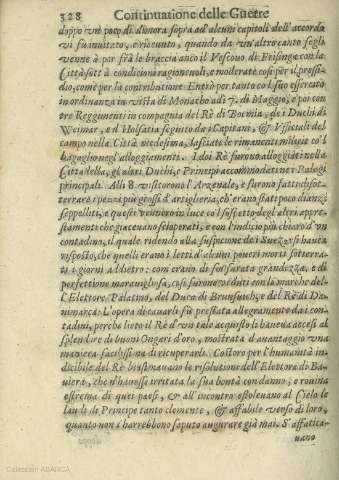 328 Continuatione delle Guerre
doppo vn poco di dimora sopra ad alcuni capitoli dell'accordo
vi fu inuitato, e riceuuto, quando da vn'altro canto se gli
venne à por frà le braccia anco il Vescouo di Frisinga con la
Città sott'à condicioni ragioneuoli, e moderate così per il presi-
dio, come per la contributione. Entrò per tanto co'l suo essercito
in ordinanza in vista di Monacho adi 7. di Maggio, e poi con
tre Reggimenti in compagnia del Rè di Boemia, de i Duchi di
Weimar, e d'Holsatia seguito da i Capitani, & Vfficiali del
campo nella Città medesima, lasciate le rimanenti militie co'l
bagaglio negl'alloggiamenti. I doi Rè furono alloggiati nella
Cittadella, gl'altri Duchi, e Principi accommodati ne i Palagi
principali. Alli 8. visitorono l'Arzenale, e furono fatti disot-
terrare i pezzi più grossi d'artiglieria, ch'erano stati poco dianzi
seppelliti, e questi vennero in luce co'l sospetto degl'altri appre-
stamenti che giaceuano scioperati, e con l'indicio più chiaro d'vn
contadino, il quale ridendo alla suspicione de i Suezzesi hauea
risposto, che quelli erano i letti d'alcuni poueri morti sotterra-
ti à giorni adietro: com'erano di sussurata grandezza, e di
perfettione marauigliosa, così furono veduti con la marche del-
l'Elettore Palatino, del Duca di Brunsuich, e del Rè di Da-
nimarca: L'opera di cauarli fù prestata allegramente dai con-
tadini, perche lieto il Rè d'vn tale acquisto li haueua accesi al
splendore di buoni Ongari d'oro, mostrata d'auantaggio vna
maniera facilissima di ricuperarli. Costoro per l'humanità in-
dicibile del Rè biasmauano le risolutione dell'Elettore di Ba-
uiera, che n'hauesse irritata la sua bontà con danno, e rouina
estrema di quei paesi, & all'incontro estoleuano al Cielo le
laudi di Principe tanto clemente, & affabile verso di loro,
quanto non i harrebbono saputo augurare già mai. S'affatica-
uano
Colección ABANCA